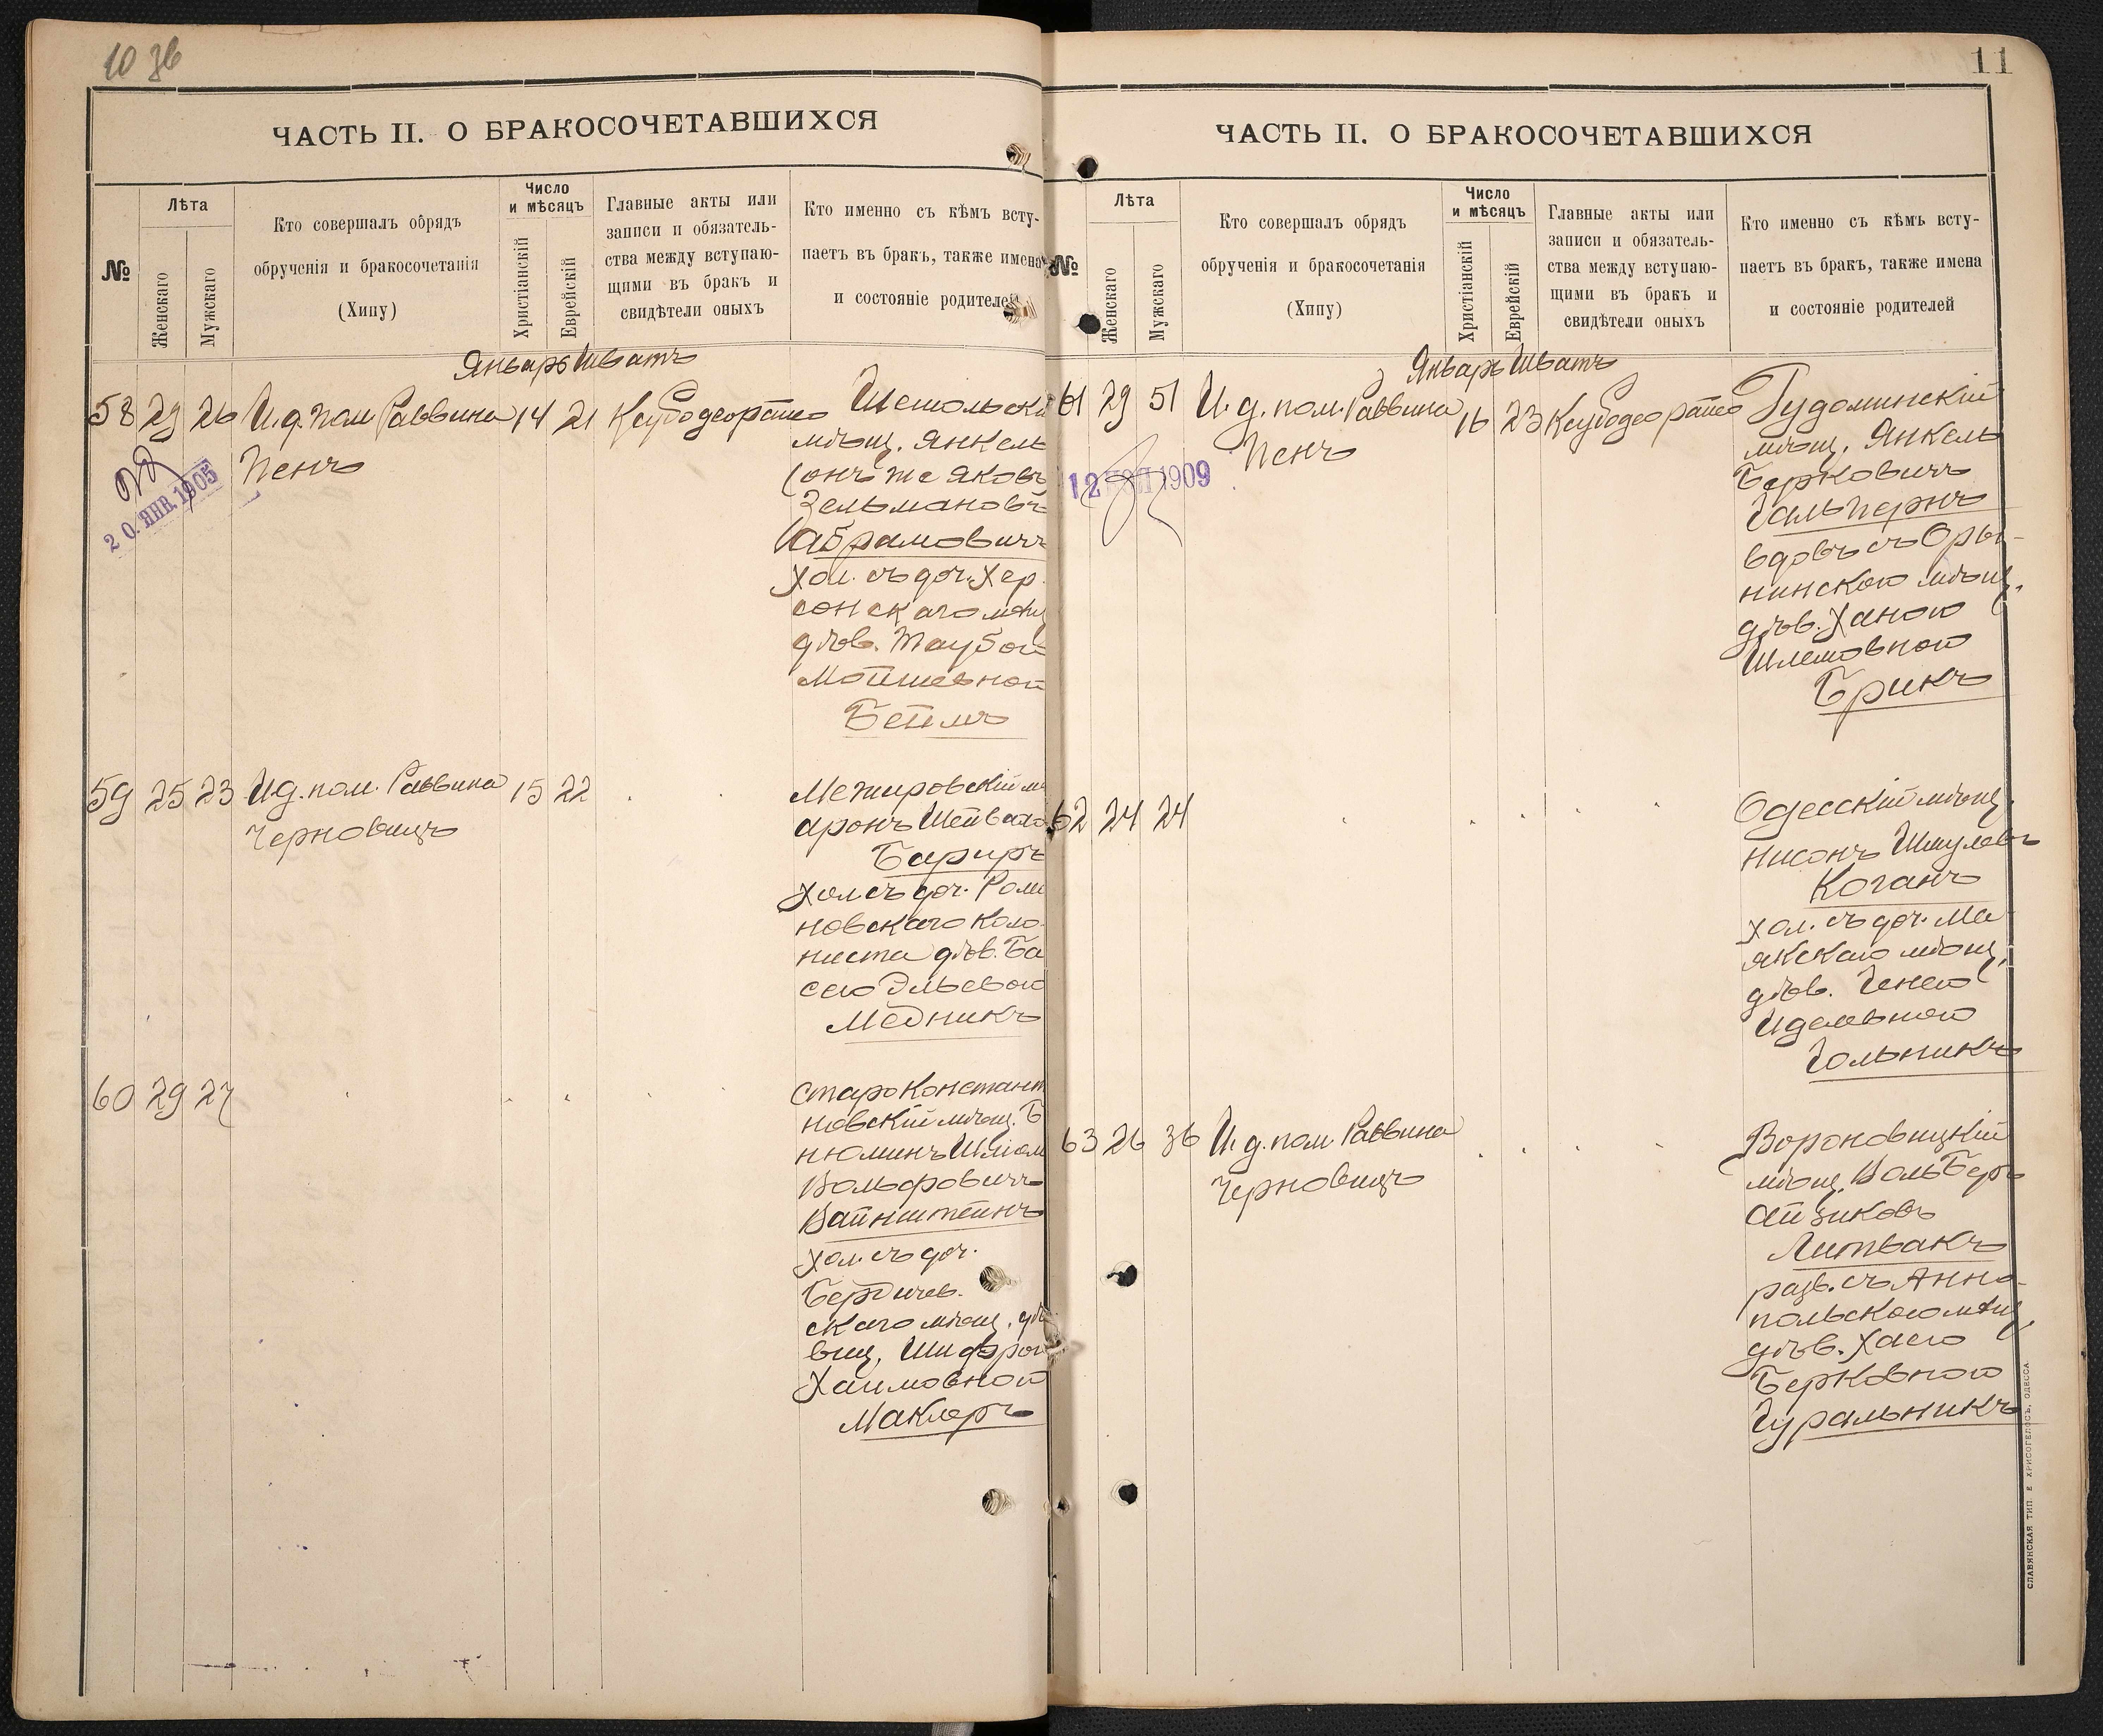 10 зв
ЧАСТЬ II. О БРАКОСОЧЕТАВШИХСЯ
№
Лѣта
Женскаго
Мужскаго
Кто совершалъ обрядъ
обрученія и бракосочетанія
(Хипу)
Число
и мѣсяцъ
Христіанскій
Еврейскій
Главные акты или
записи и обязатель-
ства между вступаю-
щими въ бракъ и
свидѣтели оныхъ
Кто именно съ кѣмъ всту-
паетъ въ бракъ, также имена
и состояніе родителей
Январь Шватъ
58 29 26 И.д. пом. Раввина 14 21
Пенъ
20. ЯНВ. 1905
мѣщ. Янкель
(онъ же Яковъ
Зельмановъ
Абрамовичъ
Хол. съ доч. Хер
сонскаго мѣщ
дѣв. Таубой
Мойшевной
Беймъ
59 25 23 И.д. пом. Раввина 15 22
Черновицъ
Межировскій м
Аронъ
Хол съ доч. Рома
новскаго коло
ниста дѣв. Ба
сею Эльевою
Медникъ
60 29 27
Староконстант
новскій мѣщ. Б
нюминъ Шлом
Вольфовичъ
Вайнштейнъ
хол. съ доч.
Бердичев.
скаго мѣщ. дѣ
виц. Шифрой
Хаимовной
Маклеръ
11
ЧАСТЬ II. О БРАКОСОЧЕТАВШИХСЯ
№
Лѣта
Женскаго
Мужскаго
Кто совершалъ обрядъ
обрученія и бракосочетанія
(Хипу)
Число
и мѣсяцъ
Христіанскій
Еврейскій
Главные акты или
записи и обязатель-
ства между вступаю-
щими въ бракъ и
свидѣтели оныхъ
Кто именно съ кѣмъ всту-
паетъ въ бракъ, также имена
и состояніе родителей
Январь Шватъ
61 29 51 И.д. пом. Раввина 16 23
Пенъ
12 1909
мѣщ. Янкель
Берковичъ
Гальпернъ
вдовъ съ Оры-
нинскою мѣщ.
дѣв. Ханою
Шлемовною
Брикъ
62 24 24
Одесскій мѣщ.
Нисонъ Шмулевъ
Коганъ
хол. съ доч. Ма
якскаго мѣщ.
дѣв. Генею
Иделевною
Гольникъ
63 26 36 И.д. пом Раввина
Черновицъ
Вороновицкій
мѣщ. Воль Беръ
Айзиковъ
Литвакъ
разв. съ Анно-
польскою мѣщ
дѣв. Хаею
Берковною
Гуральникъ
СЛАВЯНСКАЯ ТИП. Е ХРИСОГЕЛОСЪ, ОДЕССА